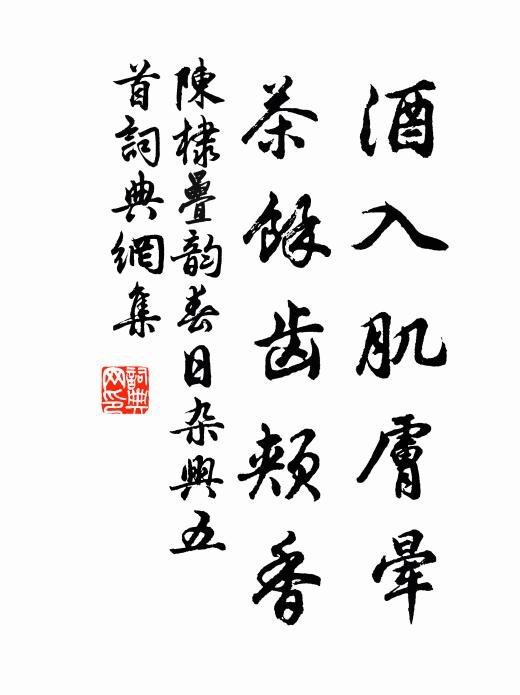 酒入肌膚暈
茶餘齿頰香
陳棣疊韵春日杂興五
首詞典網集
詞典
网印